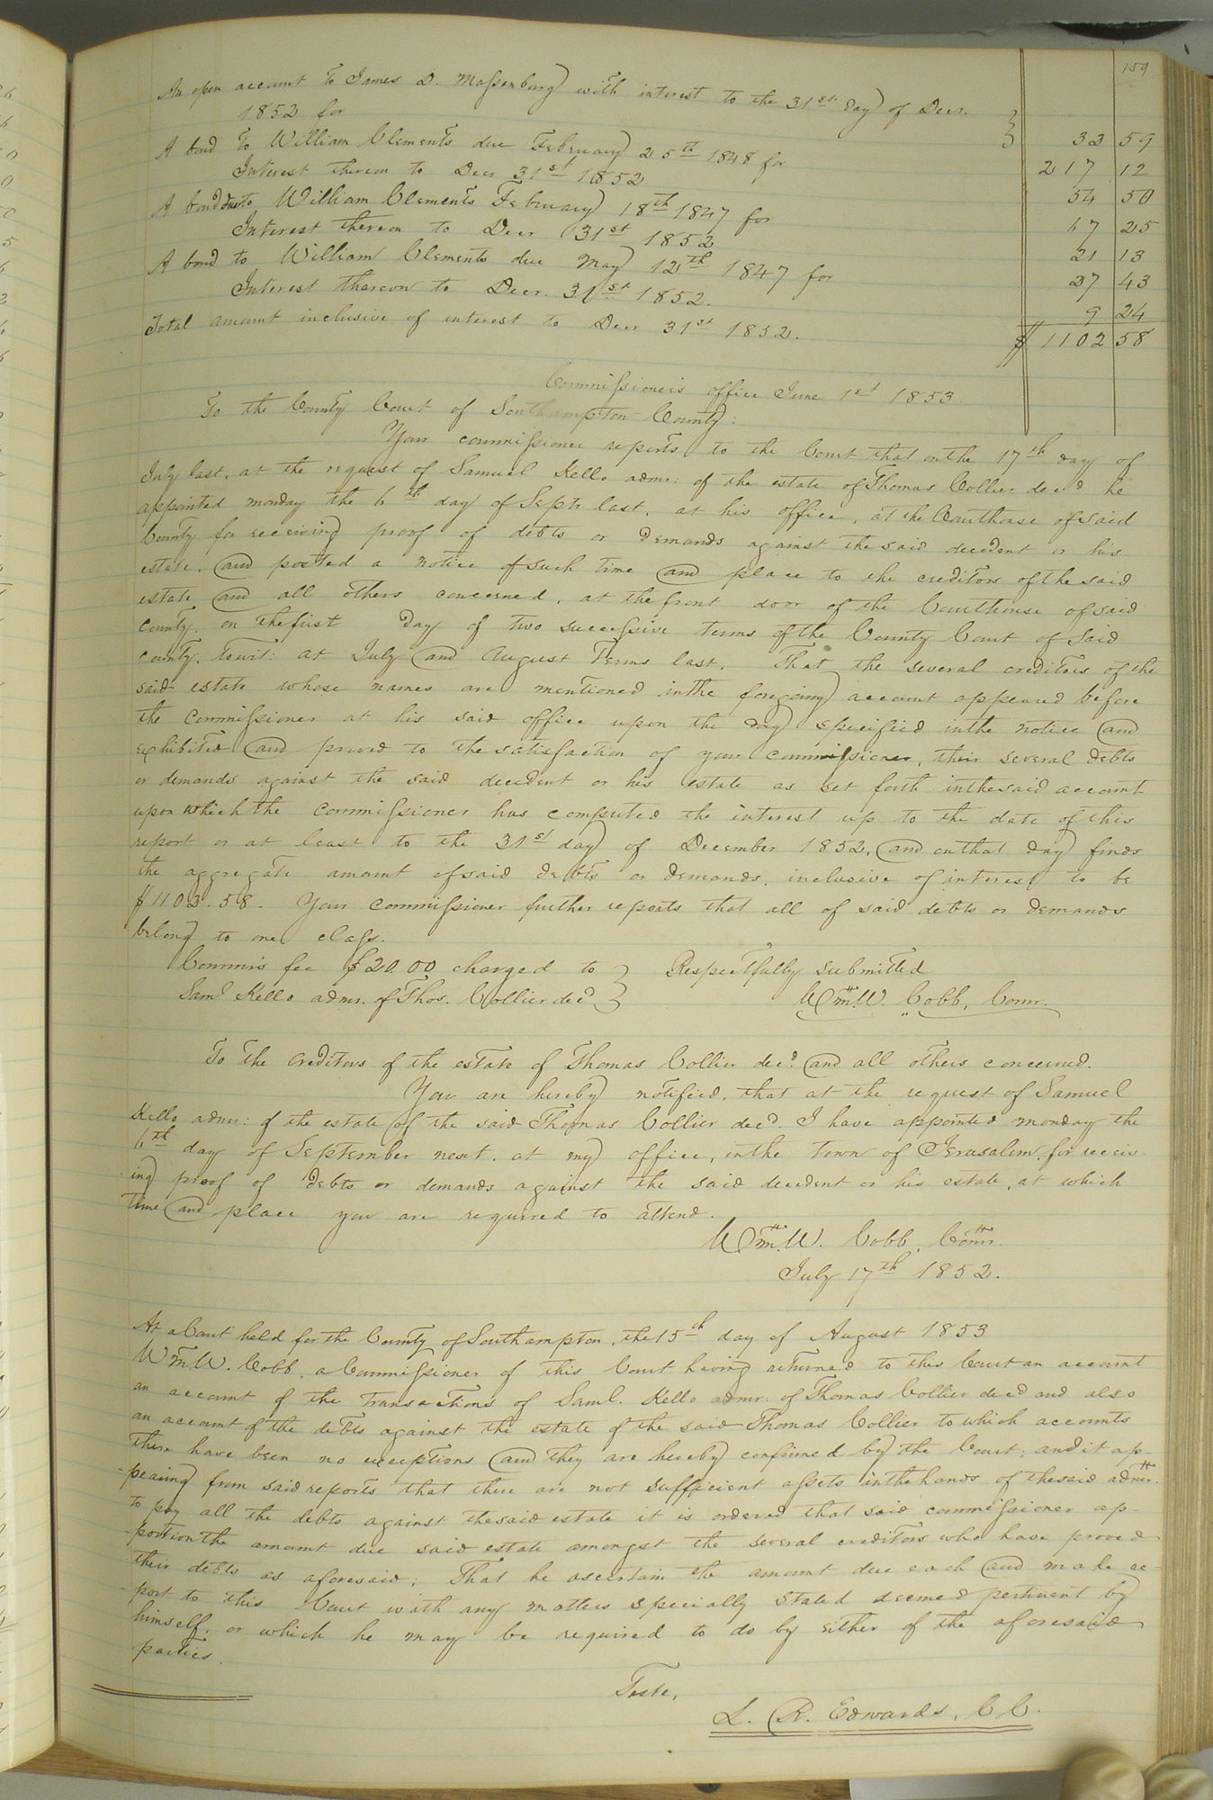 159
An open account to James D. Massenburg with interest to the 31st day of Decr.
1852 for } 33 59
A bond to William Clements due February 25th 1848 for 217 12
Interest thereon to Decr 31st 1852 54 50
A bond due to William Clements February 18th 1847 for 67 25
Interest thereon to Decr 31st 1852 21 13
A bond to William Clements due May 12th 1847 for 27 43
Interest thereon to Decr. 31st 1852. 9 24
Total amount inclusive of interest to Decr 31st 1852. $ 1102 58
Commissioner's office June 1st 1853
To the County Court of Southampton County:
Your commissioner reports to the Court that on the 17th day of
July last, at the request of Samuel Kello admr: of the estate of Thomas Collier decd he
appointed monday the 6th day of Septr last, at his office, at the Courthouse of said
County for receiving proof of debts or demands against the said decedent or his
estate, and posted a notice of such time and place to the creditors of the said
estate and all others concerned, at the front door of the Courthouse of said
County, on the first day of two successive terms of the County Court of said
County, Towit: at July and August Terms last. That the several creditors of the
said estate whose names are mentioned in the foregoing account appeared before
the commissioner at his said office upon the day specified in the notice and
exhibited and proved to the satisfaction of your commissioner, their several debts
or demands against the said decedent or his estate as set forth in the said account
upon which the commissioner has computed the interest up to the date of this
report or at least to the 31st day of December 1852, and on that day finds
the aggregate amount of said debts or demands, inclusive of interest to be
$1103.58. Your commissioner further reports that all of said debts or demands
belong to one class.
Commr's fee $20.00 charged to } Respectfully submitted
Saml Kello admr. of Thos. Collier decd } Wm. W. Cobb, Comr.
To the Creditors of the estate of Thomas Collier decd. and all others concerned.
You are hereby notified, that at the request of Samuel
Kello admr: of the estate of the said Thomas Collier decd. I have appointed monday the
6th day of September next, at my office, in the Town of Jerusalem, for receiv-
ing proof of debts or demands against the said decedent or his estate, at which
time and place you are required to attend.
Wm. W. Cobb, Comr.
July 17th 1852.
At a Court held for the County of Southampton, the 15th day of August 1853
Wm W. Cobb, a Commissioner of this Court having returned to this Court an account
an account of the transactions of Saml. Kello admr. of Thomas Collier decd and also
an account of the debts against the estate of the said Thomas Collier to which accounts
there have been no exceptions and they are hereby confirmed by the Court; and it ap-
-pearing from said reports that there are not sufficient assets in the hands of the said admr.
to pay all the debts against the said estate it is ordered that said commissioner ap-
-portion the amount due said estate amongst the several creditors who have proved
their debts as aforesaid; That he ascertain the amount due each and make re-
-port to this Court with any matters specially stated deemed pertinent by
himself, or which he may be required to do by either of the aforesaid
parties.
Teste,
L. R. Edwards, C C.